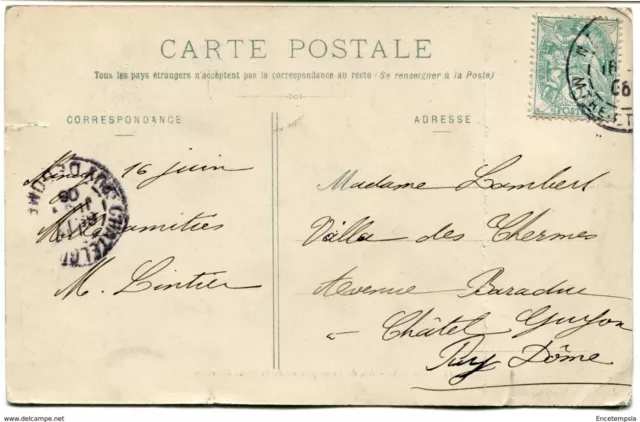 CARTE POSTALE
Tous les pays étrangers n'acceptent pas la correspondance au recto (Se renseigner à la Poste)
CORRESPONDANCE
ADRESSE
16 juin
amitiés
M. Lintier
Madame Lambert
Villa des Thermes
Avenue Baraduc
à Châtel Guyon
Puy Dôme
delcampe.net
Encetempsla